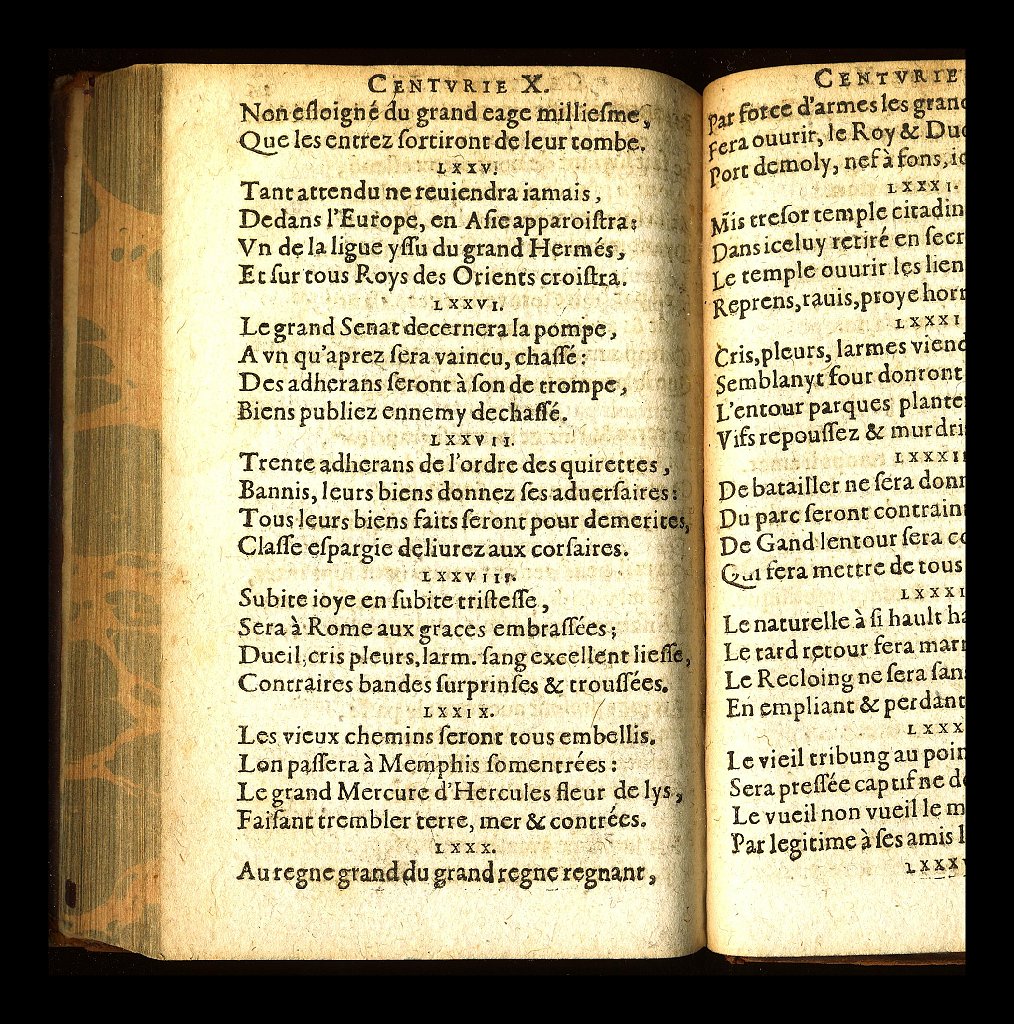 CENTVRIE X.
Non esloigné du grand eage milliesme,
Que les entrez sortiront de leur tombe.
LXXV.
Tant attendu ne reuiendra iamais,
Dedans l'Europe, en Asie apparoistra:
Vn de la ligue yssu du grand Hermés,
Et sur tous Roys des Orients croistra.
LXXVI.
Le grand Senat decernera la pompe,
A vn qu'aprez sera vaincu, chassé:
Des adherans seront à son de trompe,
Biens publiez ennemy dechassé.
LXXVII.
Trente adherans de l'ordre des quirettes,
Bannis, leurs biens donnez ses aduersaires:
Tous leurs biens faits seront pour demerites,
Classe espargie deliurez aux corsaires.
LXXVIII.
Subite ioye en subite tristesse,
Sera à Rome aux graces embrassées;
Dueil, cris pleurs, larm. sang excellent liesse,
Contraires bandes surprinses & troussées.
LXXIX.
Les vieux chemins seront tous embellis.
Lon passera à Memphis somentrées:
Le grand Mercure d'Hercules fleur de lys,
Faisant trembler terre, mer & contrées.
LXXX.
Au regne grand du grand regne regnant,
CENTVRIE
Par force d'armes les grand
Fera ouurir, le Roy & Duc
Port demoly, nef à fons,
LXXXI.
Mis tresor temple citadin
Dans iceluy retiré en secr
Le temple ouurir les lien
Reprens, rauis, proye horr
LXXXI
Cris, pleurs, larmes viend
Semblanyt four donront
L'entour parques plante
Vifs repoussez & murdri
LXXXII
De batailler ne sera donn
Du parc seront contrain
De Gand lentour sera co
Qui fera mettre de tous
LXXXI
Le naturelle à si hault ha
Le tard retour fera marr
Le Recloing ne sera san
En empliant & perdant
LXXX
Le vieil tribung au poin
Sera pressée captif ne d
Le vueil non vueil le m
Par legitime à ses amis l
LXXXV